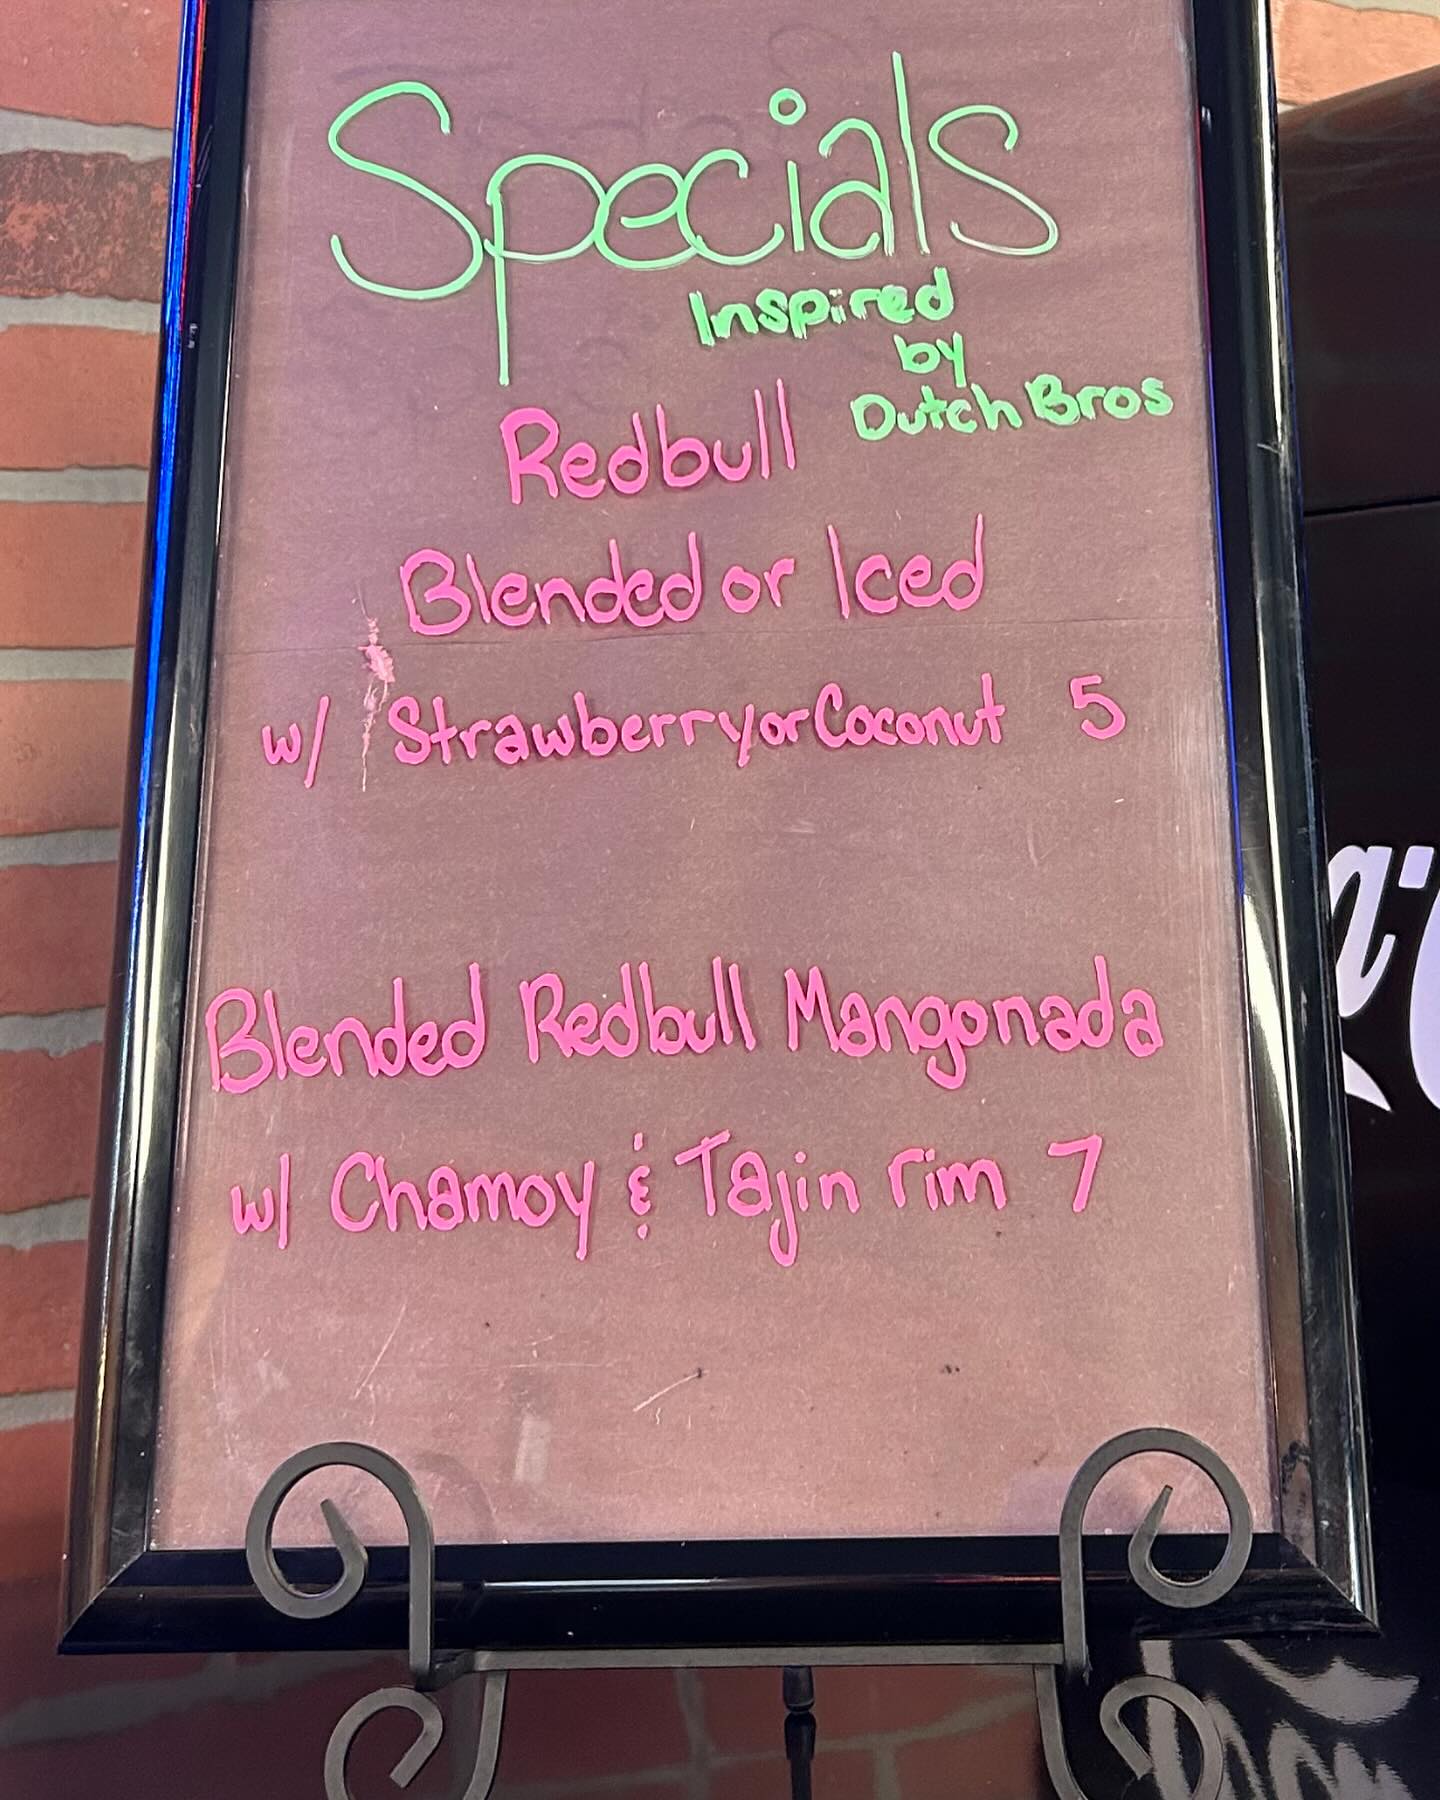 Specials
Inspired
by
Dutch Bros
Redbull
Blended or Iced
w/ Strawberry or Coconut 5
Blended Redbull Mangonada
w/ Chamoy & Tajin rim 7